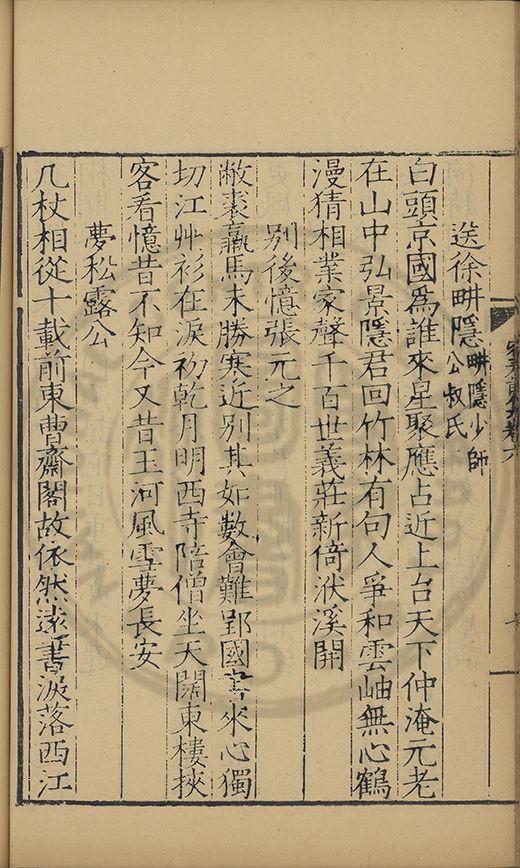 送徐畊隱畊隱少師公叔氏
白頭京國爲誰來星聚應占近上台天下仲淹元老
在山中弘景隱君回竹林有句人爭和雲岫無心鶴
漫猜相業家聲千百世義莊新倚洑溪開
别後憶張元之
敝裘羸馬未勝寒近别其如數會難郢國書來心獨
切江艸衫在淚初乾月明西寺陪僧坐天闊東樓挾
客看憶昔不知今又昔玉河風雪夢長安
夢松露公
几杖相從十載前東曹齋閣故依然遠書淚落西江